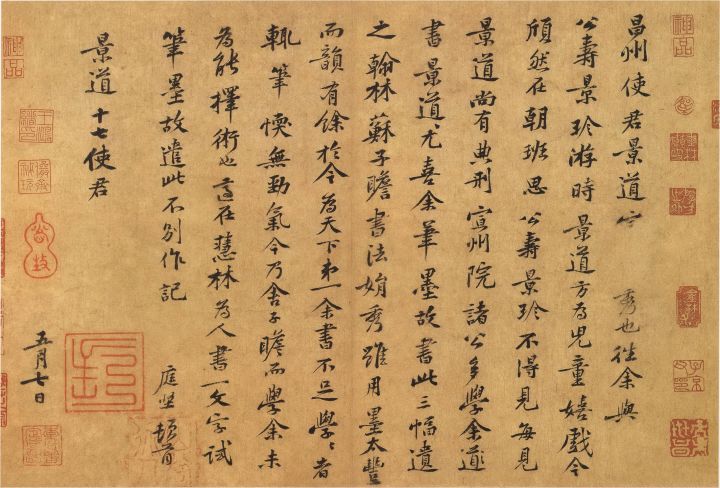 昌州使君景道宗秀也往余與
公壽景珍游時景道方為兒童嬉戲今
頎然在朝班思公壽景珍不得見每見
景道尚有典刑宣州院諸公多學余
書景道尤喜余筆墨故書此三幅遺
之翰林蘇子瞻書法娟秀雖用墨太豐
而韻有餘於今為天下第一余書不足學〻者
輒筆愞無勁氣今乃舍子瞻而學余未
為能擇術也適在慧林為人書一文字試
筆墨故遣此不別作記
庭堅頓首
景道十七使君
五月七日
神品
神品